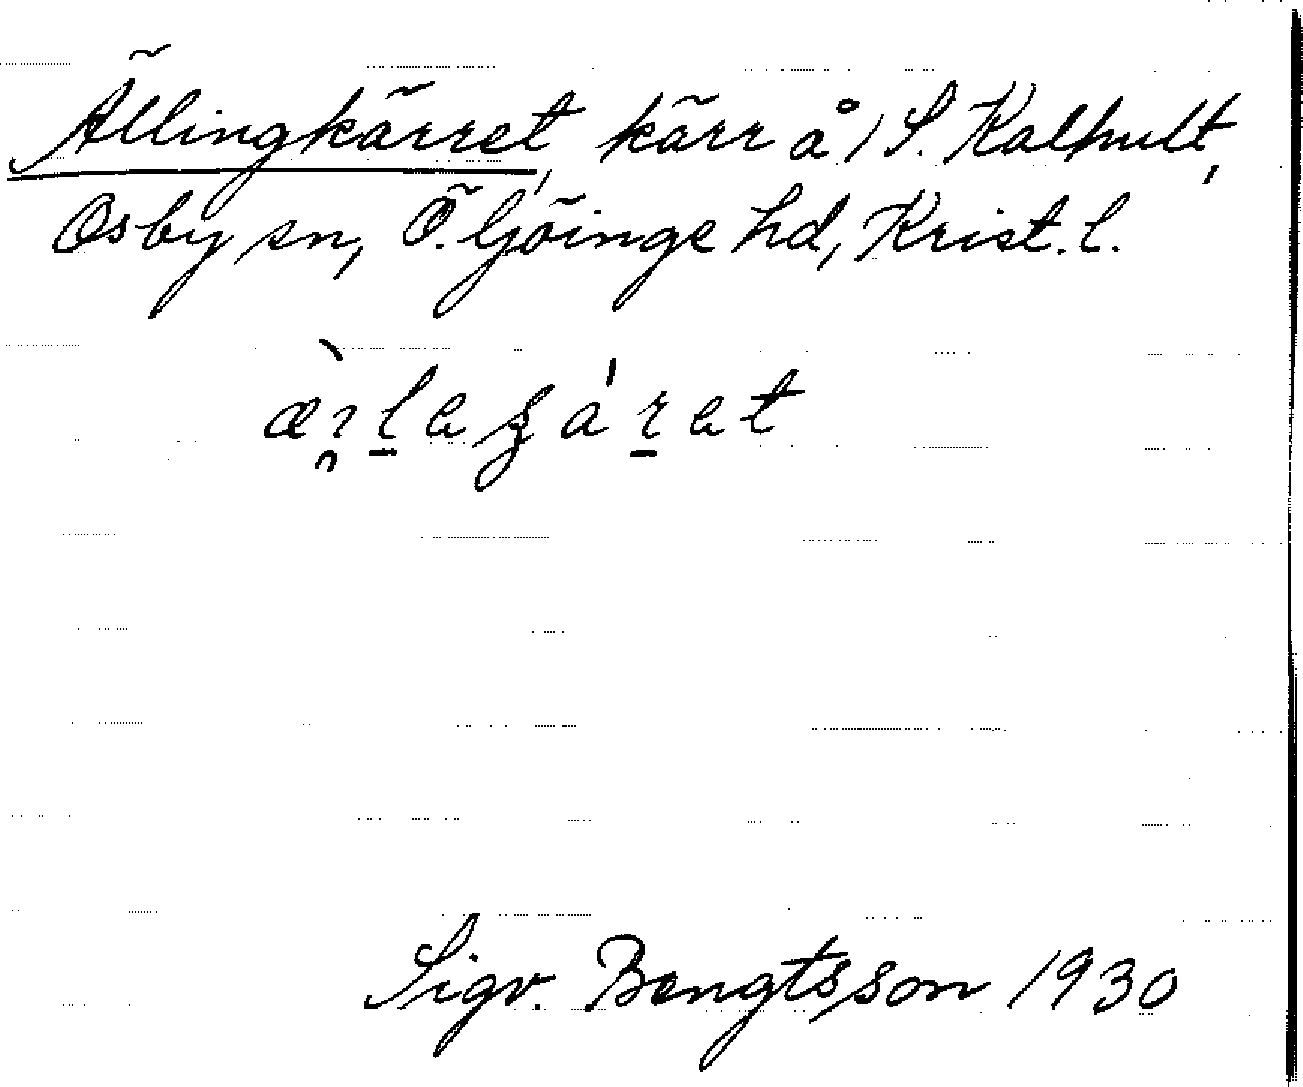 Ällingkärret, kärr å 1 S. Kalhult,
Osby sn, Ö. Göinge hd, Krist. l.
Sigv. Bengtsson 1930